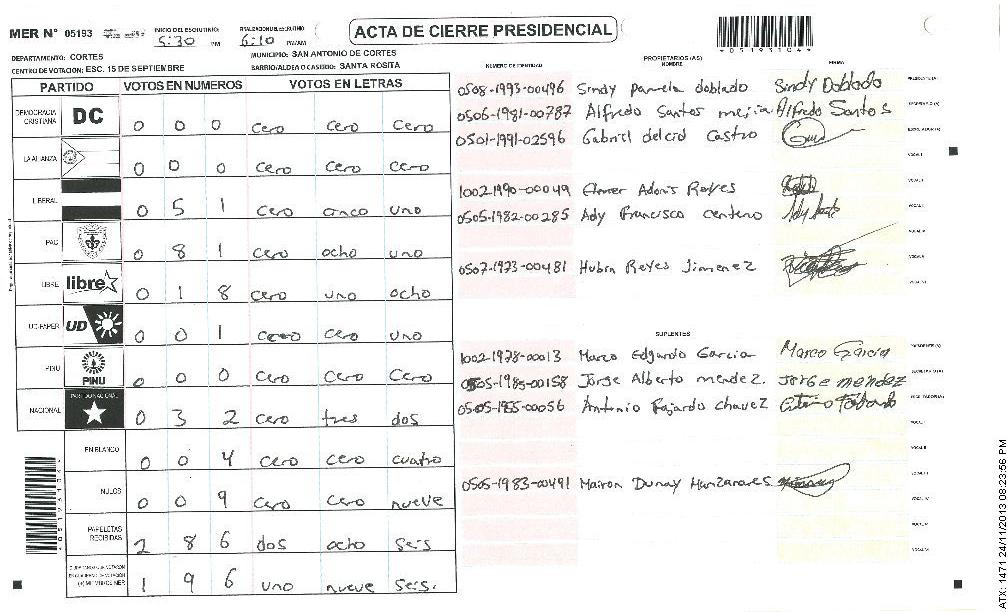 MER N° 05193
INICIO DEL ESCRUTINIO:
5:30 PM
FINALIZACION DEL ESCRUTINIO
6:10 PM/AM
ACTA DE CIERRE PRESIDENCIAL
DEPARTAMENTO: CORTES
MUNICIPIO: SAN ANTONIO DE CORTES
CENTRO DE VOTACION: ESC. 15 DE SEPTIEMBRE
BARRIO/ALDEA O CASERIO: SANTA ROSITA
PARTIDO VOTOS EN NUMEROS VOTOS EN LETRAS
DEMOCRACIA CRISTIANA DC 0 0 0 cero cero cero
LA ALIANZA 0 0 0 cero cero cero
LIBERAL 0 5 1 cero cinco uno
PAC 0 8 1 cero ocho uno
LIBRE libre 0 1 8 cero uno ocho
UD-FAPER UD 0 0 1 cero cero uno
PINU PINU 0 0 0 cero cero cero
NACIONAL PARTIDO NACIONAL 0 3 2 cero tres dos
EN BLANCO 0 0 4 cero cero cuatro
NULOS 0 0 9 cero cero nueve
PAPELETAS RECIBIDAS 2 8 6 dos ocho seis
1 9 6 uno nueve seis.
NUMERO DE IDENTIDAD PROPIETARIOS (AS) NOMBRE FIRMA
0508-1993-00496 Sindy Pamela doblado Sindy Doblado PRESIDENTE(A)
0506-1981-00787 Alfredo Santos mejia Alfredo Santos SECRETARIO (A)
0501-1991-02596 Gabriel delcid Castro ESCRUTADOR(A)
VOCAL I
1002-1990-00049 Elmer Adonis Reyes VOCAL II
0505-1982-00285 Ady Francisco centeno VOCAL III
VOCAL IV
0507-1973-00481 Hubin Reyes Jimenez VOCAL V
VOCAL VI
SUPLENTES
1002-1978-00013 Marco Edgardo Garcia Marco Garcia PRESIDENTE (A)
0505-1985-00158 Jorge Alberto mendez. Jorge mendez SECRETARIO(A)
0505-1955-00056 Antonio Fajardo chavez ESCRUTADOR(A)
VOCAL I
VOCAL II
0505-1983-00491 Mairon Dunay Manzanares VOCAL III
VOCAL IV
VOCAL V
VOCAL VI
ATX: 1471 24/11/2013 08:23:56 PM